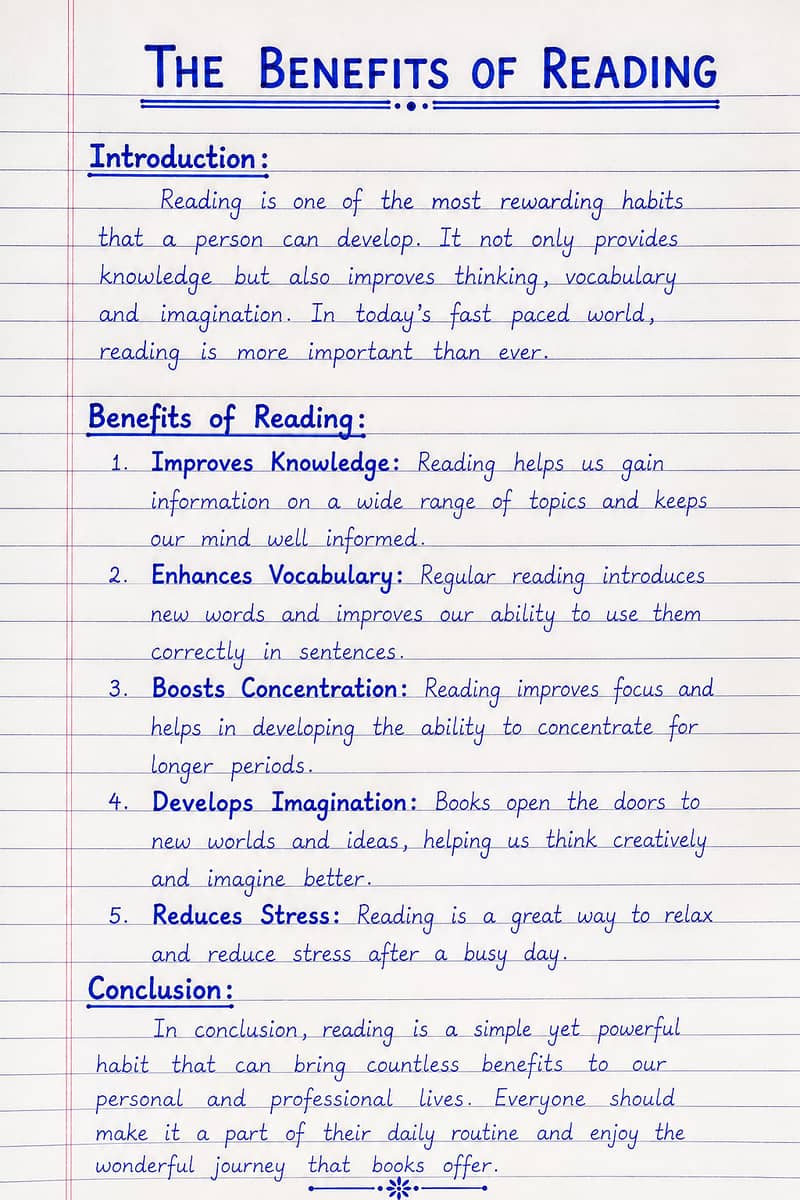 THE BENEFITS OF READING
Introduction:
Reading is one of the most rewarding habits
that a person can develop. It not only provides
knowledge but also improves thinking, vocabulary
and imagination. In today's fast paced world,
reading is more important than ever.
Benefits of Reading:
1. Improves Knowledge: Reading helps us gain
information on a wide range of topics and keeps
our mind well informed.
2. Enhances Vocabulary: Regular reading introduces
new words and improves our ability to use them
correctly in sentences.
3. Boosts Concentration: Reading improves focus and
helps in developing the ability to concentrate for
longer periods.
4. Develops Imagination: Books open the doors to
new worlds and ideas, helping us think creatively
and imagine better.
5. Reduces Stress: Reading is a great way to relax
and reduce stress after a busy day.
Conclusion:
In conclusion, reading is a simple yet powerful
habit that can bring countless benefits to our
personal and professional lives. Everyone should
make it a part of their daily routine and enjoy the
wonderful journey that books offer.